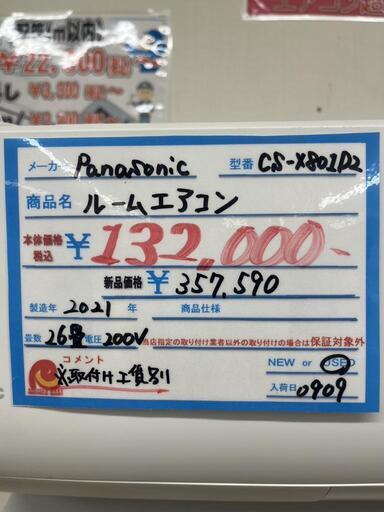 配管4m以内
¥22,000税込〜
¥3,300税込〜
メーカー Panasonic 型番 CS-X801D2
商品名 ルームエアコン
本体価格税込 ¥132,000-
新品価格 ¥357,590
製造年 2021年 商品仕様
畳数 26畳 電圧 200V 当店指定の取り付け業者以外の取り付けの場合は保証対象外
コメント NEW or USED
※取付け工賃別 入荷日 0909